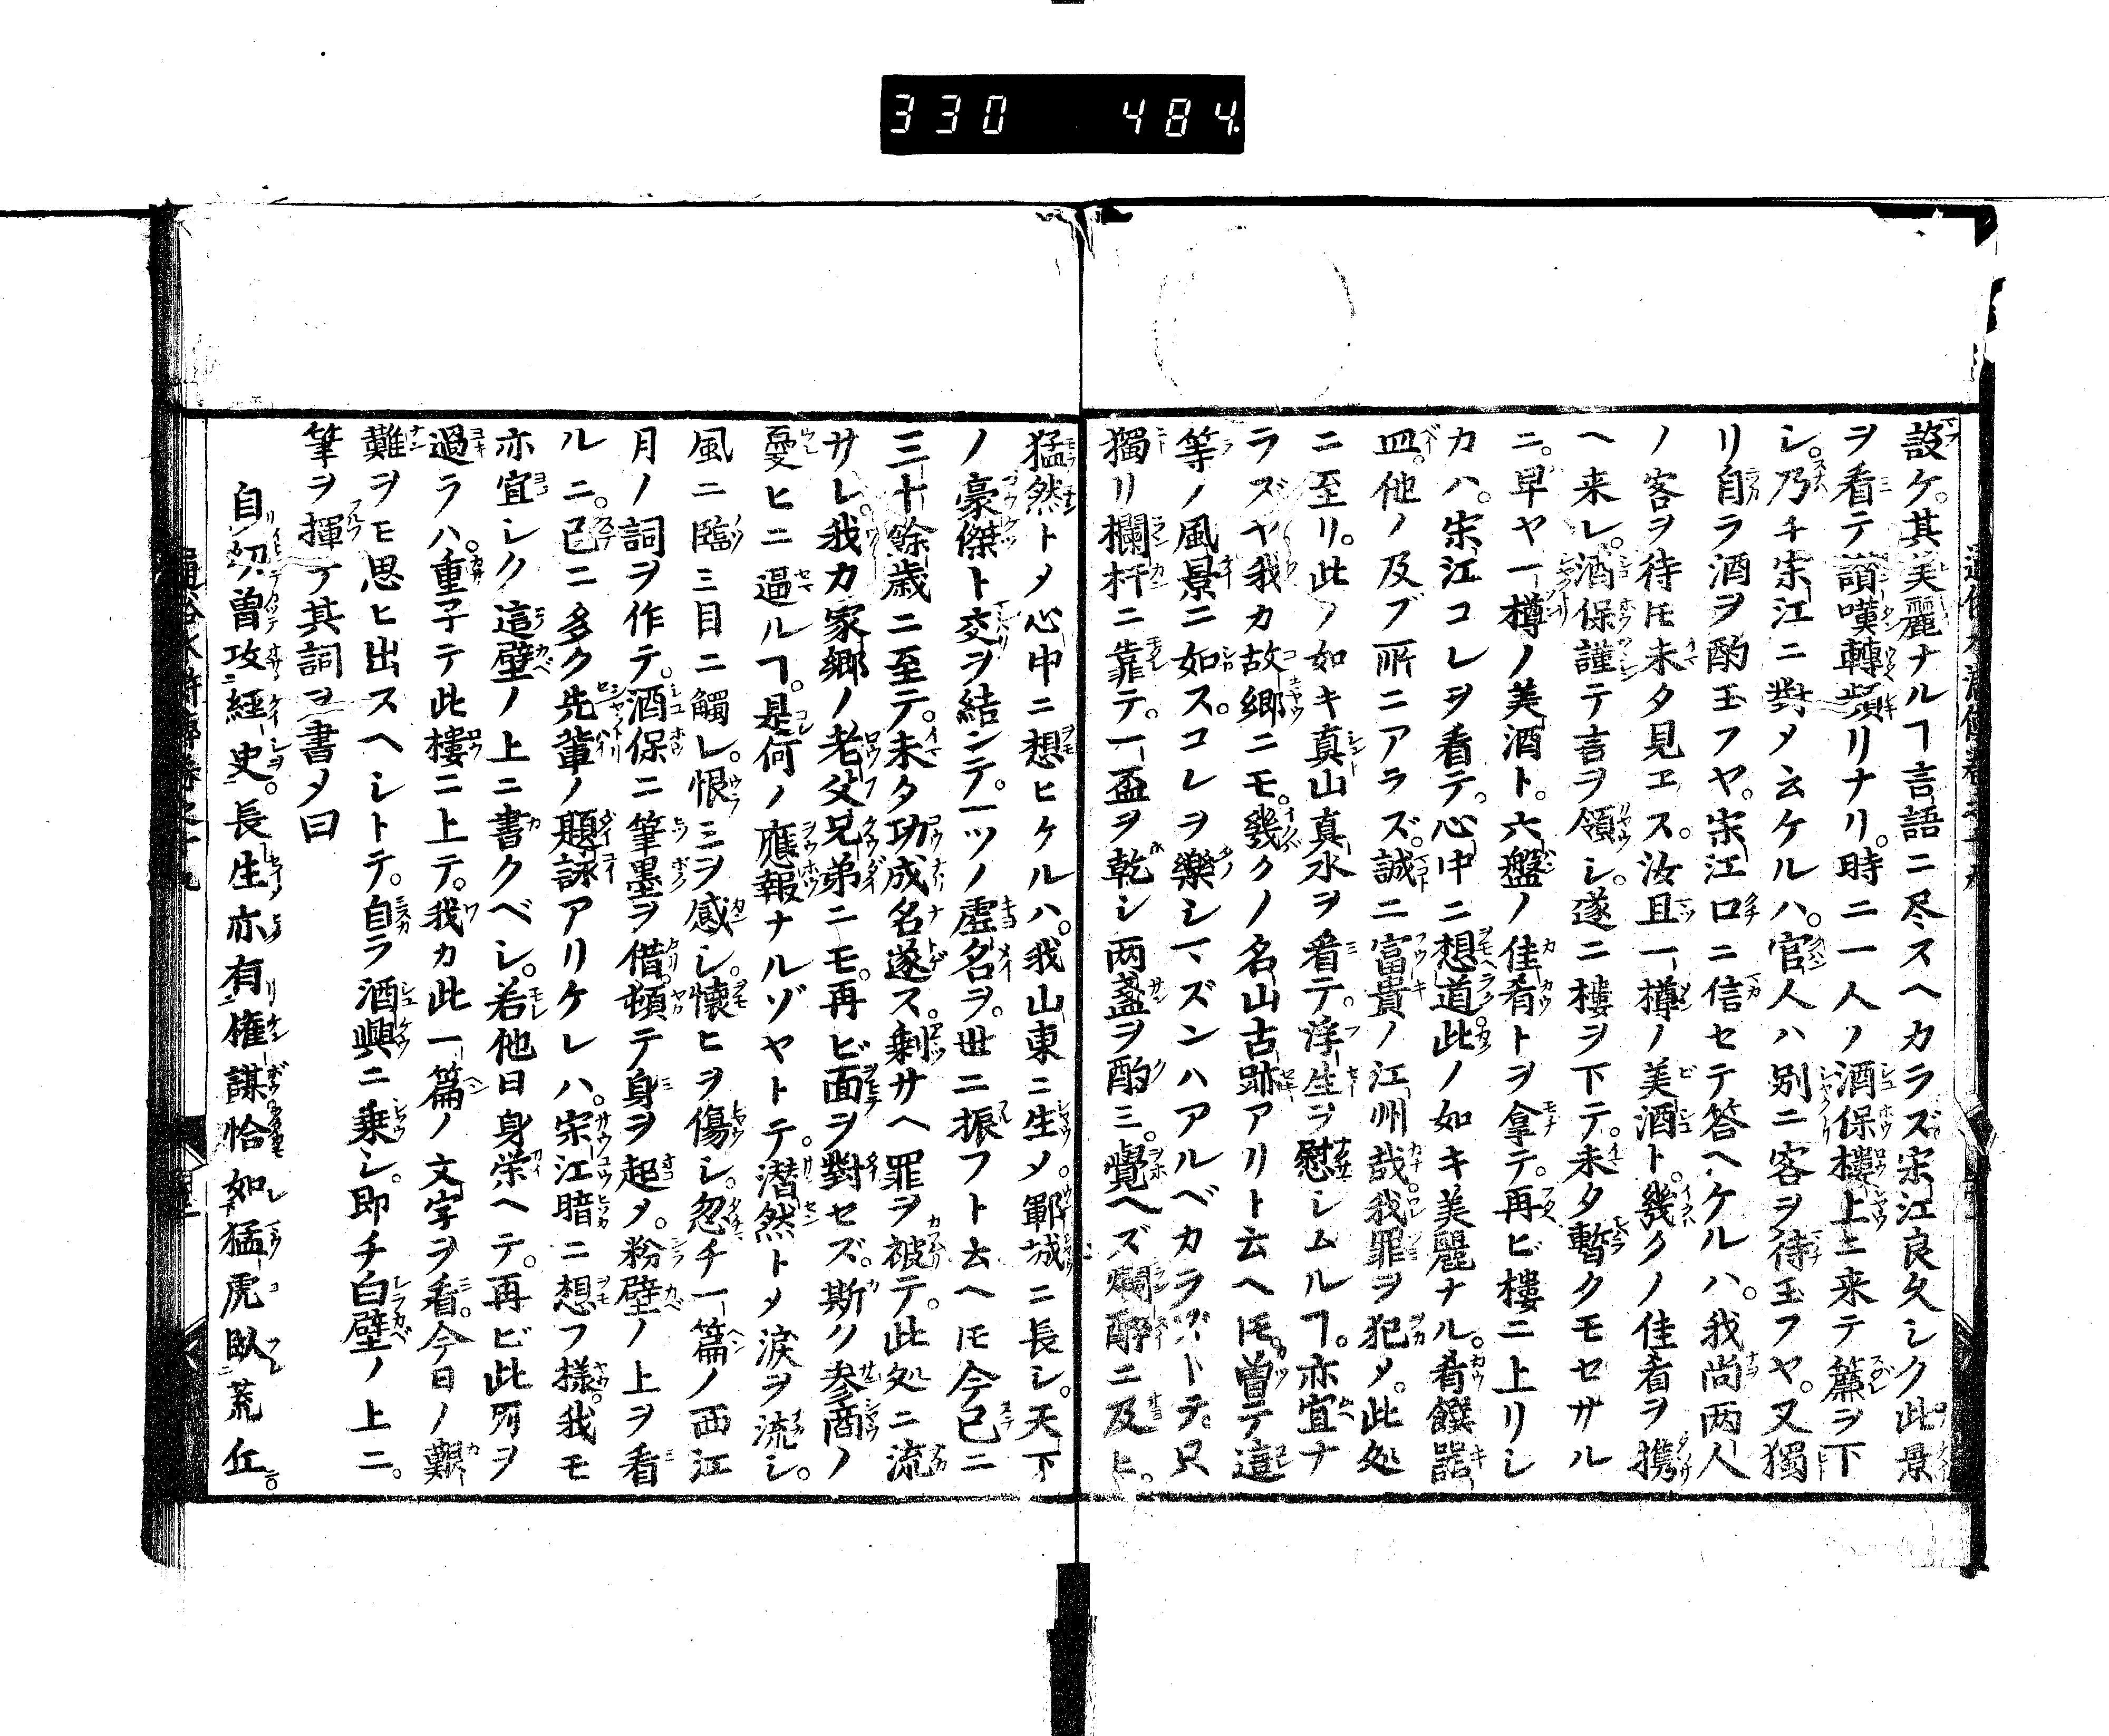 330 484
設ケ。其美麗ナルヿ言語ニ尽スヘカラズ宋江良久シク此景
ヲ看テ讃嘆轉頻リナリ。時ニ一人ノ酒保樓上ニ来テ簾ヲ下
シ。乃チ宋江ニ對メ云ケルハ。官人ハ別ニ客ヲ待玉フヤ。又獨
リ自ラ酒ヲ酌玉フヤ。宋江口ニ信セテ答ヘケルハ。我尚两人
ノ客ヲ待𪜈未タ見ヱス。汝且一樽ノ美酒ト。幾クノ佳肴ヲ携
ヘ来レ。酒保謹テ言ヲ領シ。遂ニ樓ヲ下テ。未タ暫クモセサル
ニ。早ヤ一樽ノ美酒ト。六盤ノ佳肴トヲ拿テ。再ビ樓ニ上リシ
カハ。宋江コレヲ看テ。心中ニ想道。此ノ如キ美麗ナル。肴饌器
皿。他ノ及ブ所ニアラズ。誠ニ富貴ノ江州哉。我罪ヲ犯メ。此処
ニ至リ。此ノ如キ真山真水ヲ看テ。浮生ヲ慰シムルヿ。亦宜ナ
ラズヤ我カ故郷ニモ。幾クノ名山古跡アリト云ヘ𪜈。曽テ這
等ノ風景ニ如ス。コレヲ樂シマズンハアルベカラズトテ。只
獨リ欄杆ニ靠テ。一盃ヲ乾シ两盞ヲ酌ミ。覺ヘズ爛酔ニ及ヒ。
猛然トメ心中ニ想ヒケルハ。我山東ニ生メ。鄆城ニ長シ。天下
ノ豪傑ト交ヲ結ンテ。一ツノ虚名ヲ。世ニ振フト云ヘ𪜈今已ニ
三十餘歳ニ至テ。未タ功成名遂ス。剰サヘ罪ヲ被テ。此処ニ流
サレ。我カ家郷ノ老父兄弟ニモ。再ビ面ヲ對セズ。斯ク参商ノ
憂ヒニ逼ルヿ。是何ノ應報ナルゾヤトテ。潜然トメ涙ヲ流シ。
風ニ臨ミ目ニ觸レ。恨ミヲ感シ。懐ヒヲ傷シ。忽チ一篇ノ西江
月ノ詞ヲ作テ。酒保ニ筆墨ヲ借。頓テ身ヲ起メ。粉壁ノ上ヲ看
ルニ。已ニ多ク先輩ノ題詠アリケレハ。宋江暗ニ想フ様。我モ
亦宜シク這壁ノ上ニ書クベシ。若他日身栄ヘテ。再ビ此所ヲ
過ラハ。重子テ此樓ニ上テ。我カ此一篇ノ文字ヲ看。今日ノ艱
難ヲモ思ヒ出スヘシトテ。自ラ酒興ニ乗シ。即チ白壁ノ上ニ。
筆ヲ揮テ其詞ヲ書メ曰
自幼曽攻經史。長生亦有權謀恰如猛虎臥荒丘。